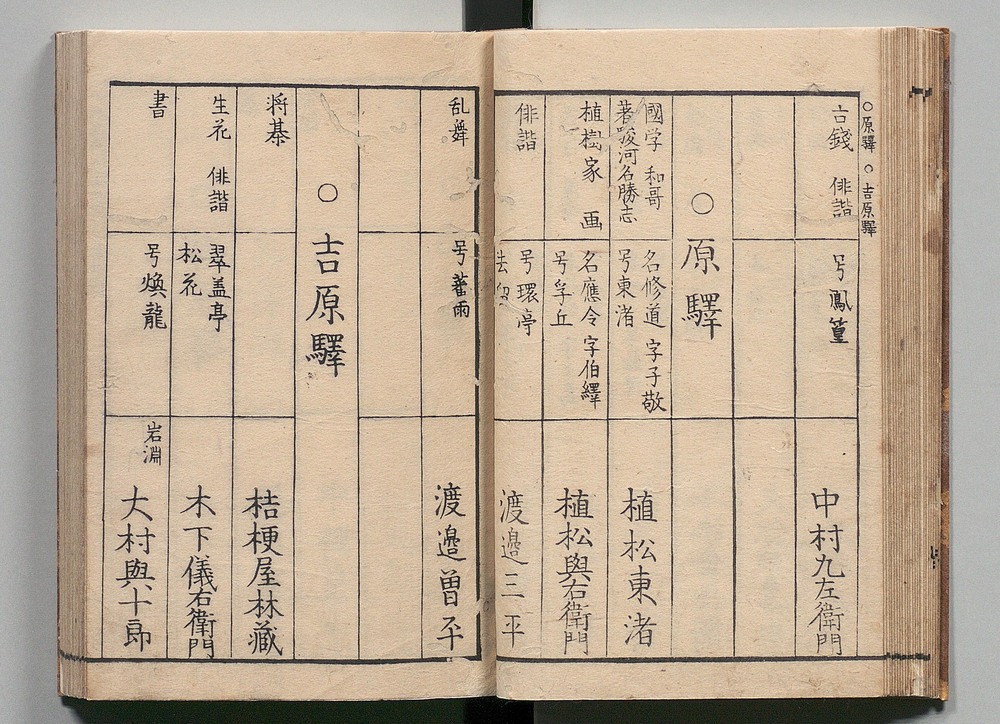 ○原驛 ○吉原驛
古錢 俳諧
号鳳篁
中村九左衛門
○原驛
國学 和哥
著駿河名勝志
名修道 字子敬
号東渚
植松東渚
植樹家 画
名應令 字伯繹
号孚丘
植松與右衛門
俳諧
号環亭
渡邉三平
乱舞
号雨
渡邉曽平
○吉原驛
将棊
桔梗屋林藏
生花 俳諧
翠盖亭
松花
木下儀右衛門
書
号煥龍
岩淵
大村與十郎